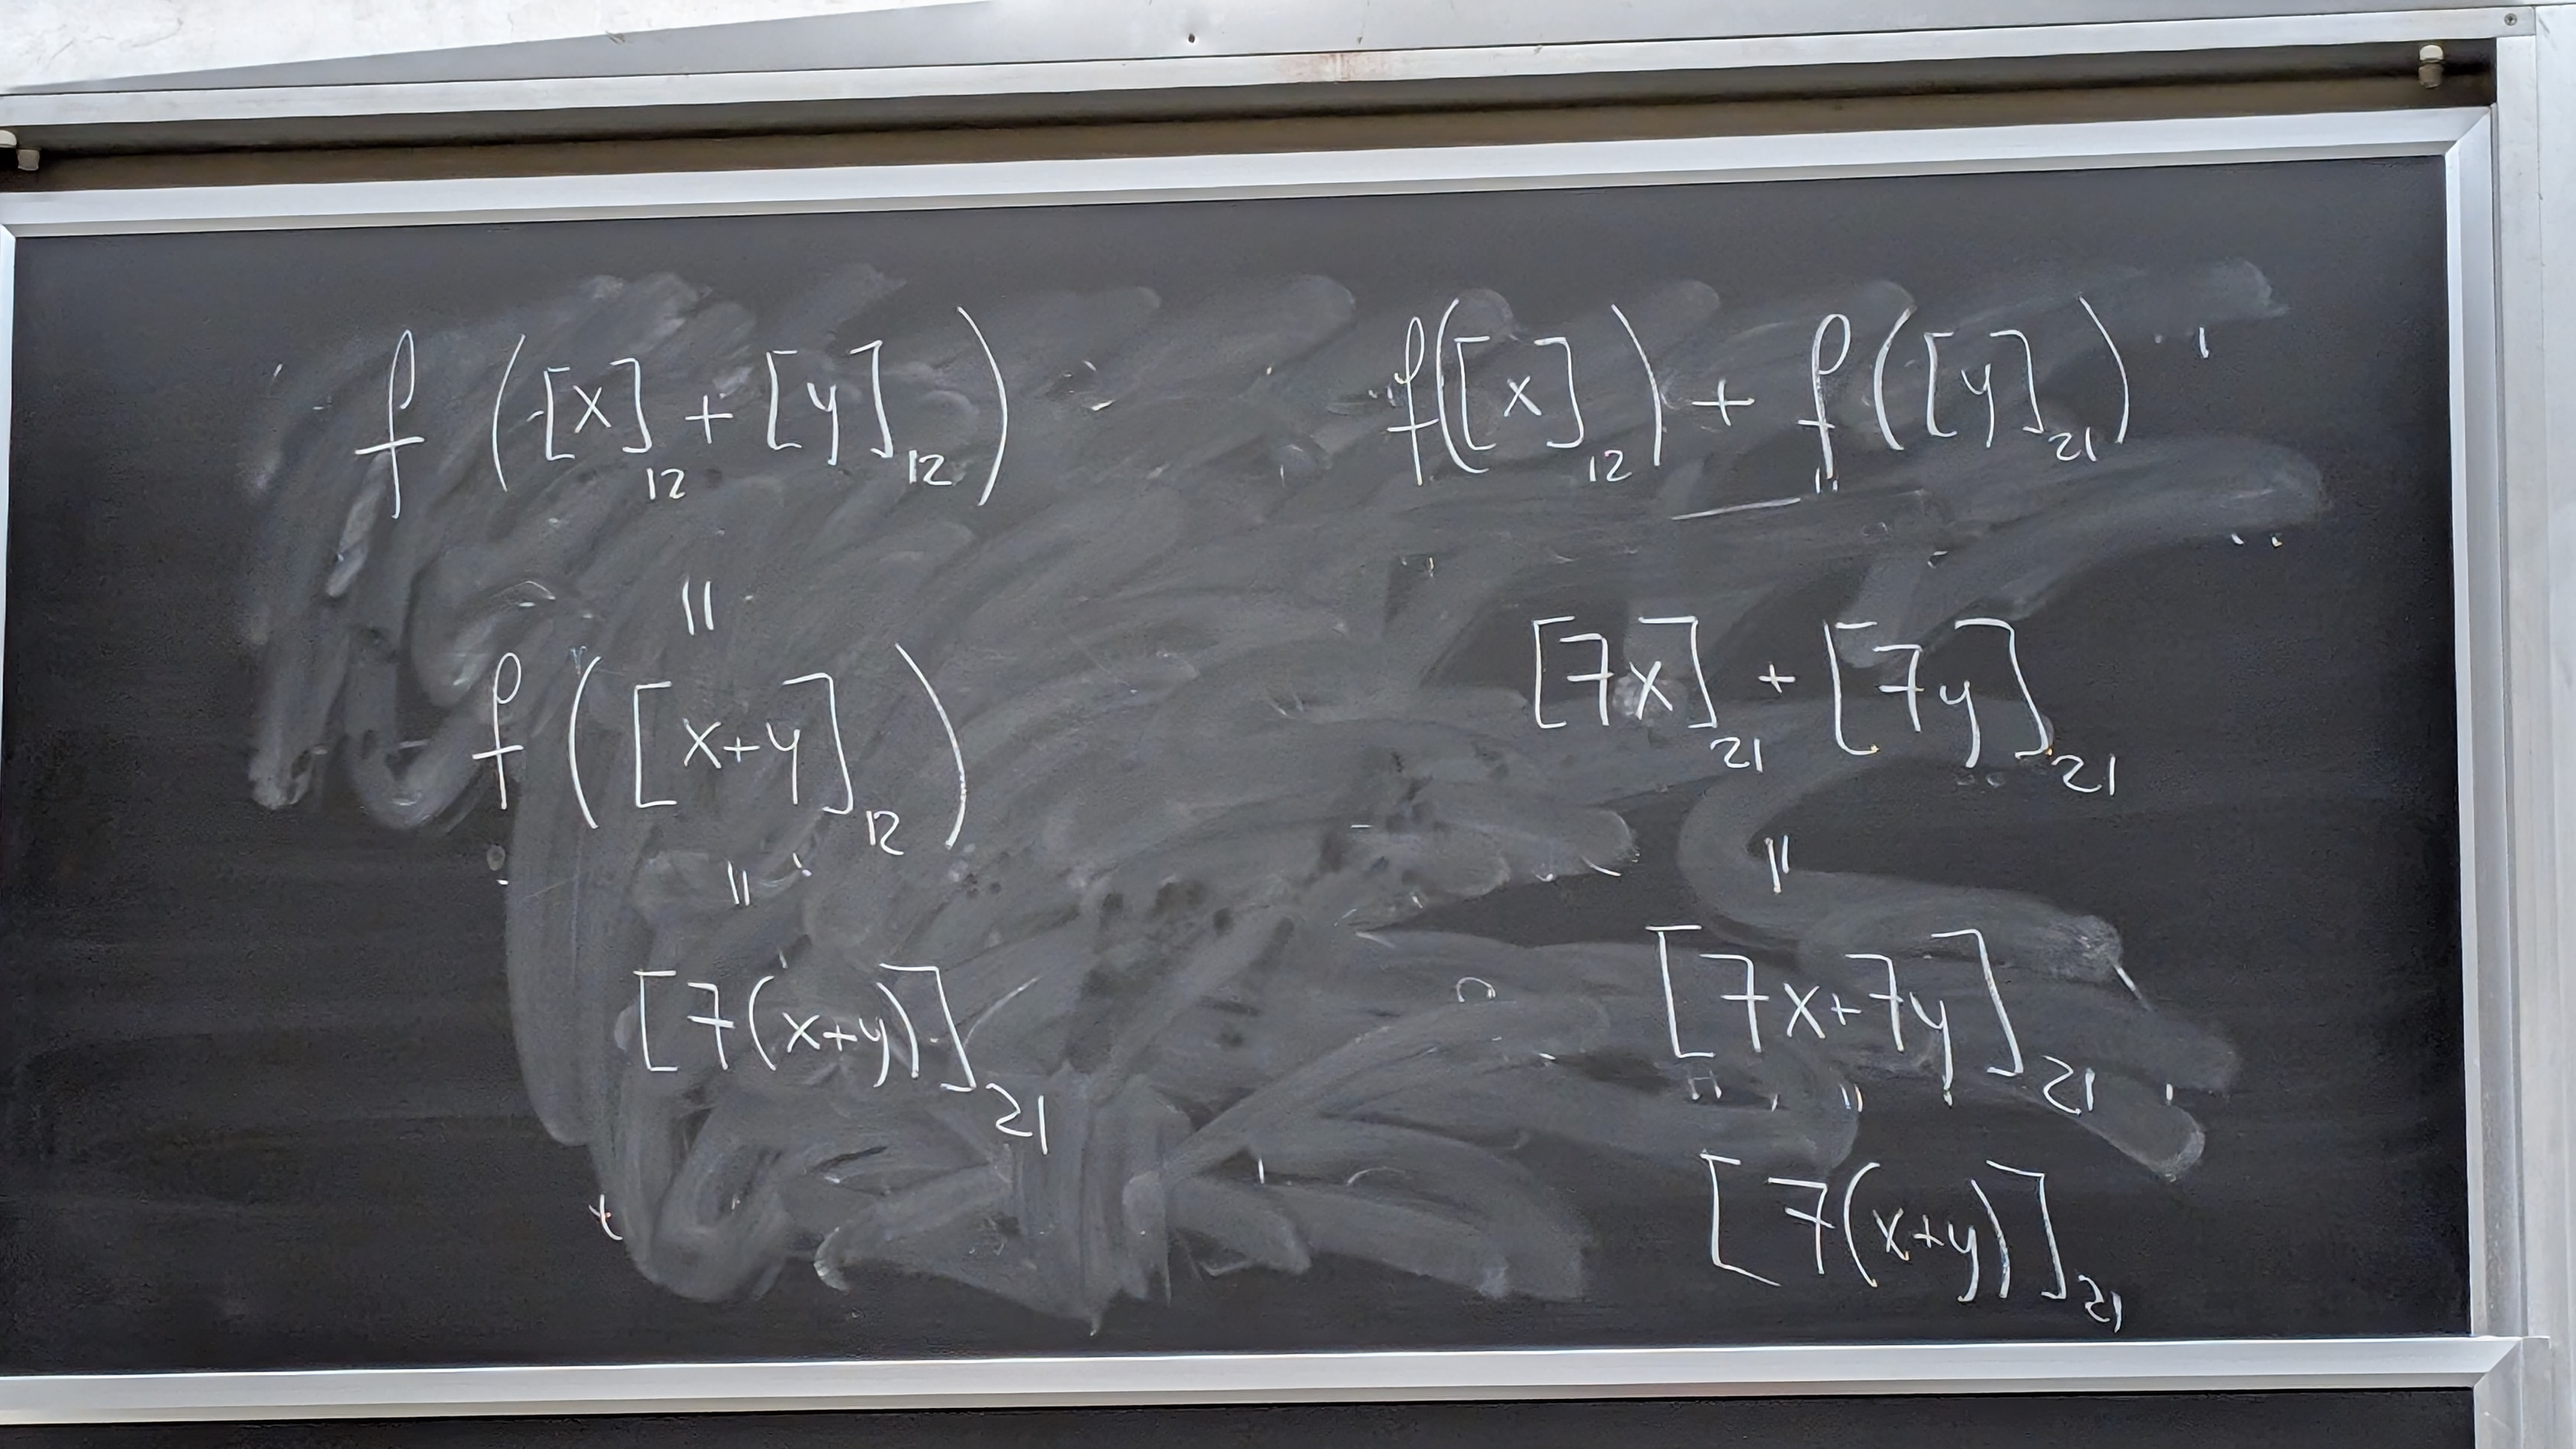 f([x]₁₂ + [y]₁₂)
=
f([x+y]₁₂)
=
[7(x+y)]₂₁
f([x]₁₂) + f([y]₂₁)
=
[7x]₂₁ + [7y]₂₁
=
[7x+7y]₂₁
=
[7(x+y)]₂₁